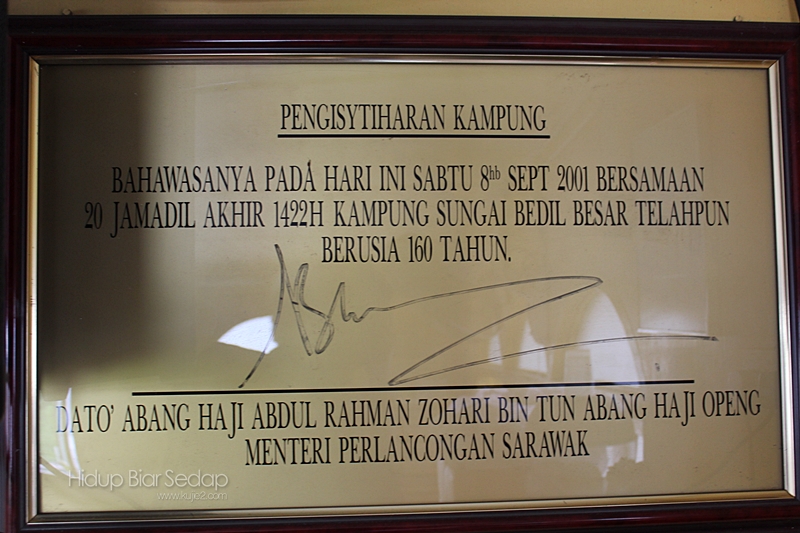 PENGISYTIHARAN KAMPUNG
BAHAWASANYA PADA HARI INI SABTU 8hb SEPT 2001 BERSAMAAN
20 JAMADIL AKHIR 1422H KAMPUNG SUNGAI BEDIL BESAR TELAHPUN
BERUSIA 160 TAHUN.
DATO' ABANG HAJI ABDUL RAHMAN ZOHARI BIN TUN ABANG HAJI OPENG
MENTERI PERLANCONGAN SARAWAK
Hidup Biar Sedap
www.kuje2.com